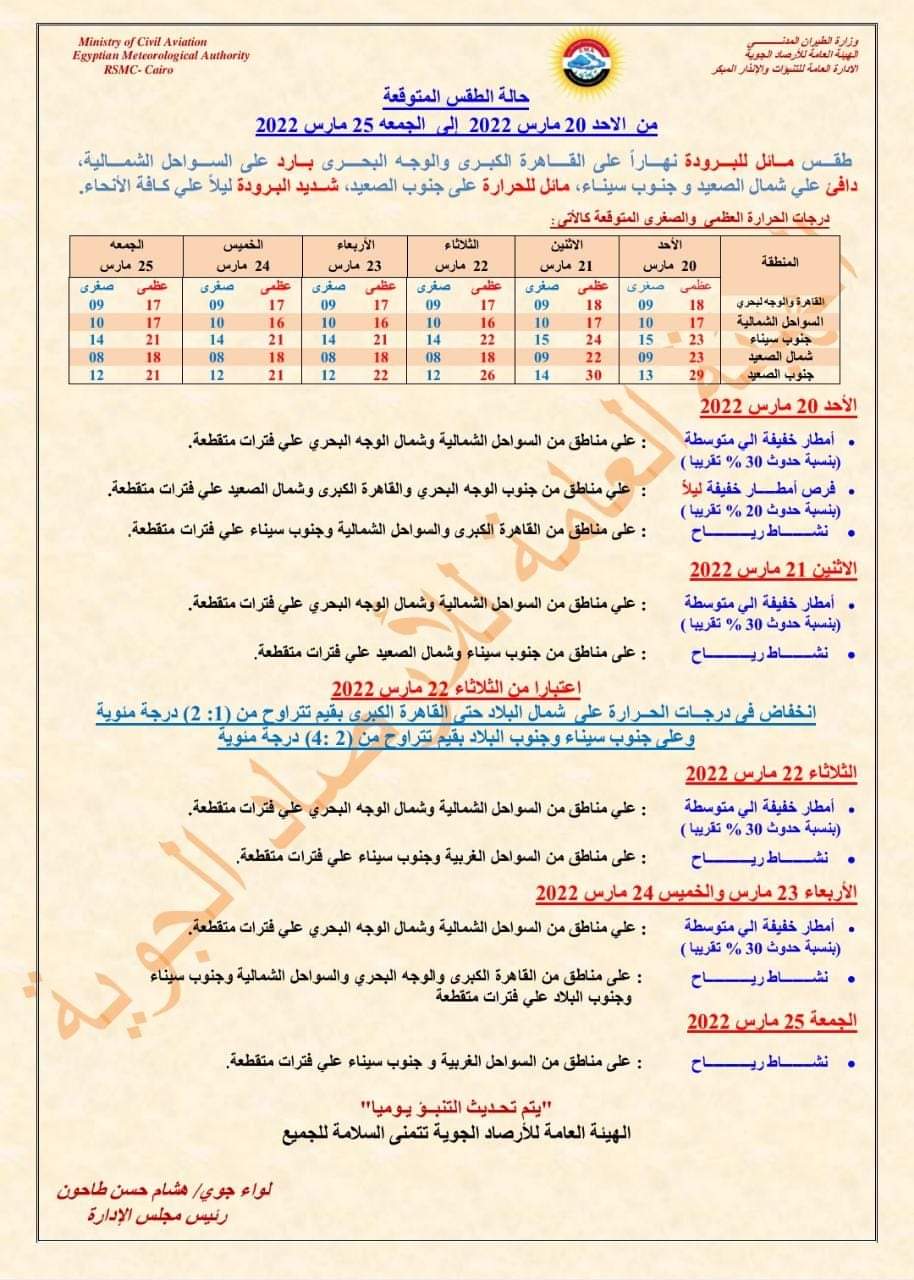 Ministry of Civil Aviation
Egyptian Meteorological Authority
RSMC- Cairo
وزارة الطيران المدني
الهيئة العامة للأرصاد الجوية
الادارة العامة للتنبؤات والإنذار المبكر
حالة الطقس المتوقعة
من الاحد 20 مارس 2022 إلى الجمعه 25 مارس 2022
طقس مائل للبرودة نهاراً على القاهرة الكبرى والوجه البحرى بارد على السواحل الشمالية،
دافئ علي شمال الصعيد و جنوب سيناء، مائل للحرارة على جنوب الصعيد، شديد البرودة ليلاً علي كافة الأنحاء.
درجات الحرارة العظمي والصغرى المتوقعة كالأتي:
المنطقة الأحد الاثنين الثلاثاء الأربعاء الخميس الجمعه
20 مارس 21 مارس 22 مارس 23 مارس 24 مارس 25 مارس
عظمى صغرى عظمى صغرى عظمى صغرى عظمى صغرى عظمى صغرى عظمى صغرى
القاهرة والوجه لبحري 18 09 18 09 17 09 17 09 17 09 17 09
السواحل الشمالية 17 10 17 10 16 10 16 10 16 10 17 10
جنوب سيناء 23 15 24 15 22 14 21 14 21 14 21 14
شمال الصعيد 23 09 22 09 18 08 18 08 18 08 18 08
جنوب الصعيد 29 13 30 14 26 12 22 12 21 12 21 12
الأحد 20 مارس 2022
• أمطار خفيفة الي متوسطة : علي مناطق من السواحل الشمالية وشمال الوجه البحري علي فترات متقطعة.
(بنسبة حدوث 30 % تقريبا )
• فرص أمطار خفيفة ليلاً : علي مناطق من جنوب الوجه البحري والقاهرة الكبرى وشمال الصعيد علي فترات متقطعة.
(بنسبة حدوث 20 % تقريبا )
• نشاط رياح : على مناطق من القاهرة الكبرى والسواحل الشمالية وجنوب سيناء علي فترات متقطعة.
الاثنين 21 مارس 2022
• أمطار خفيفة الي متوسطة : علي مناطق من السواحل الشمالية وشمال الوجه البحري علي فترات متقطعة.
(بنسبة حدوث 30 % تقريبا )
• نشاط رياح : على مناطق من جنوب سيناء وشمال الصعيد علي فترات متقطعة.
اعتبارا من الثلاثاء 22 مارس 2022
انخفاض في درجات الحرارة على شمال البلاد حتى القاهرة الكبرى بقيم تتراوح من (1: 2) درجة مئوية
وعلى جنوب سيناء وجنوب البلاد بقيم تتراوح من (2 :4) درجة مئوية
الثلاثاء 22 مارس 2022
• أمطار خفيفة الي متوسطة : علي مناطق من السواحل الشمالية وشمال الوجه البحري علي فترات متقطعة.
(بنسبة حدوث 30 % تقريبا )
• نشاط رياح : على مناطق من السواحل الغربية وجنوب سيناء علي فترات متقطعة.
الأربعاء 23 مارس والخميس 24 مارس 2022
• أمطار خفيفة الي متوسطة : علي مناطق من السواحل الشمالية وشمال الوجه البحري علي فترات متقطعة.
(بنسبة حدوث 30 % تقريبا )
• نشاط رياح : على مناطق من القاهرة الكبرى والوجه البحري والسواحل الشمالية وجنوب سيناء
وجنوب البلاد علي فترات متقطعة
الجمعة 25 مارس 2022
• نشاط رياح : على مناطق من السواحل الغربية و جنوب سيناء علي فترات متقطعة.
"يتم تحديث التنبؤ يوميا"
الهيئة العامة للأرصاد الجوية تتمنى السلامة للجميع
لواء جوي/ هشام حسن طاحون
رئيس مجلس الإدارة
الهيئة العامة للأرصاد الجوية